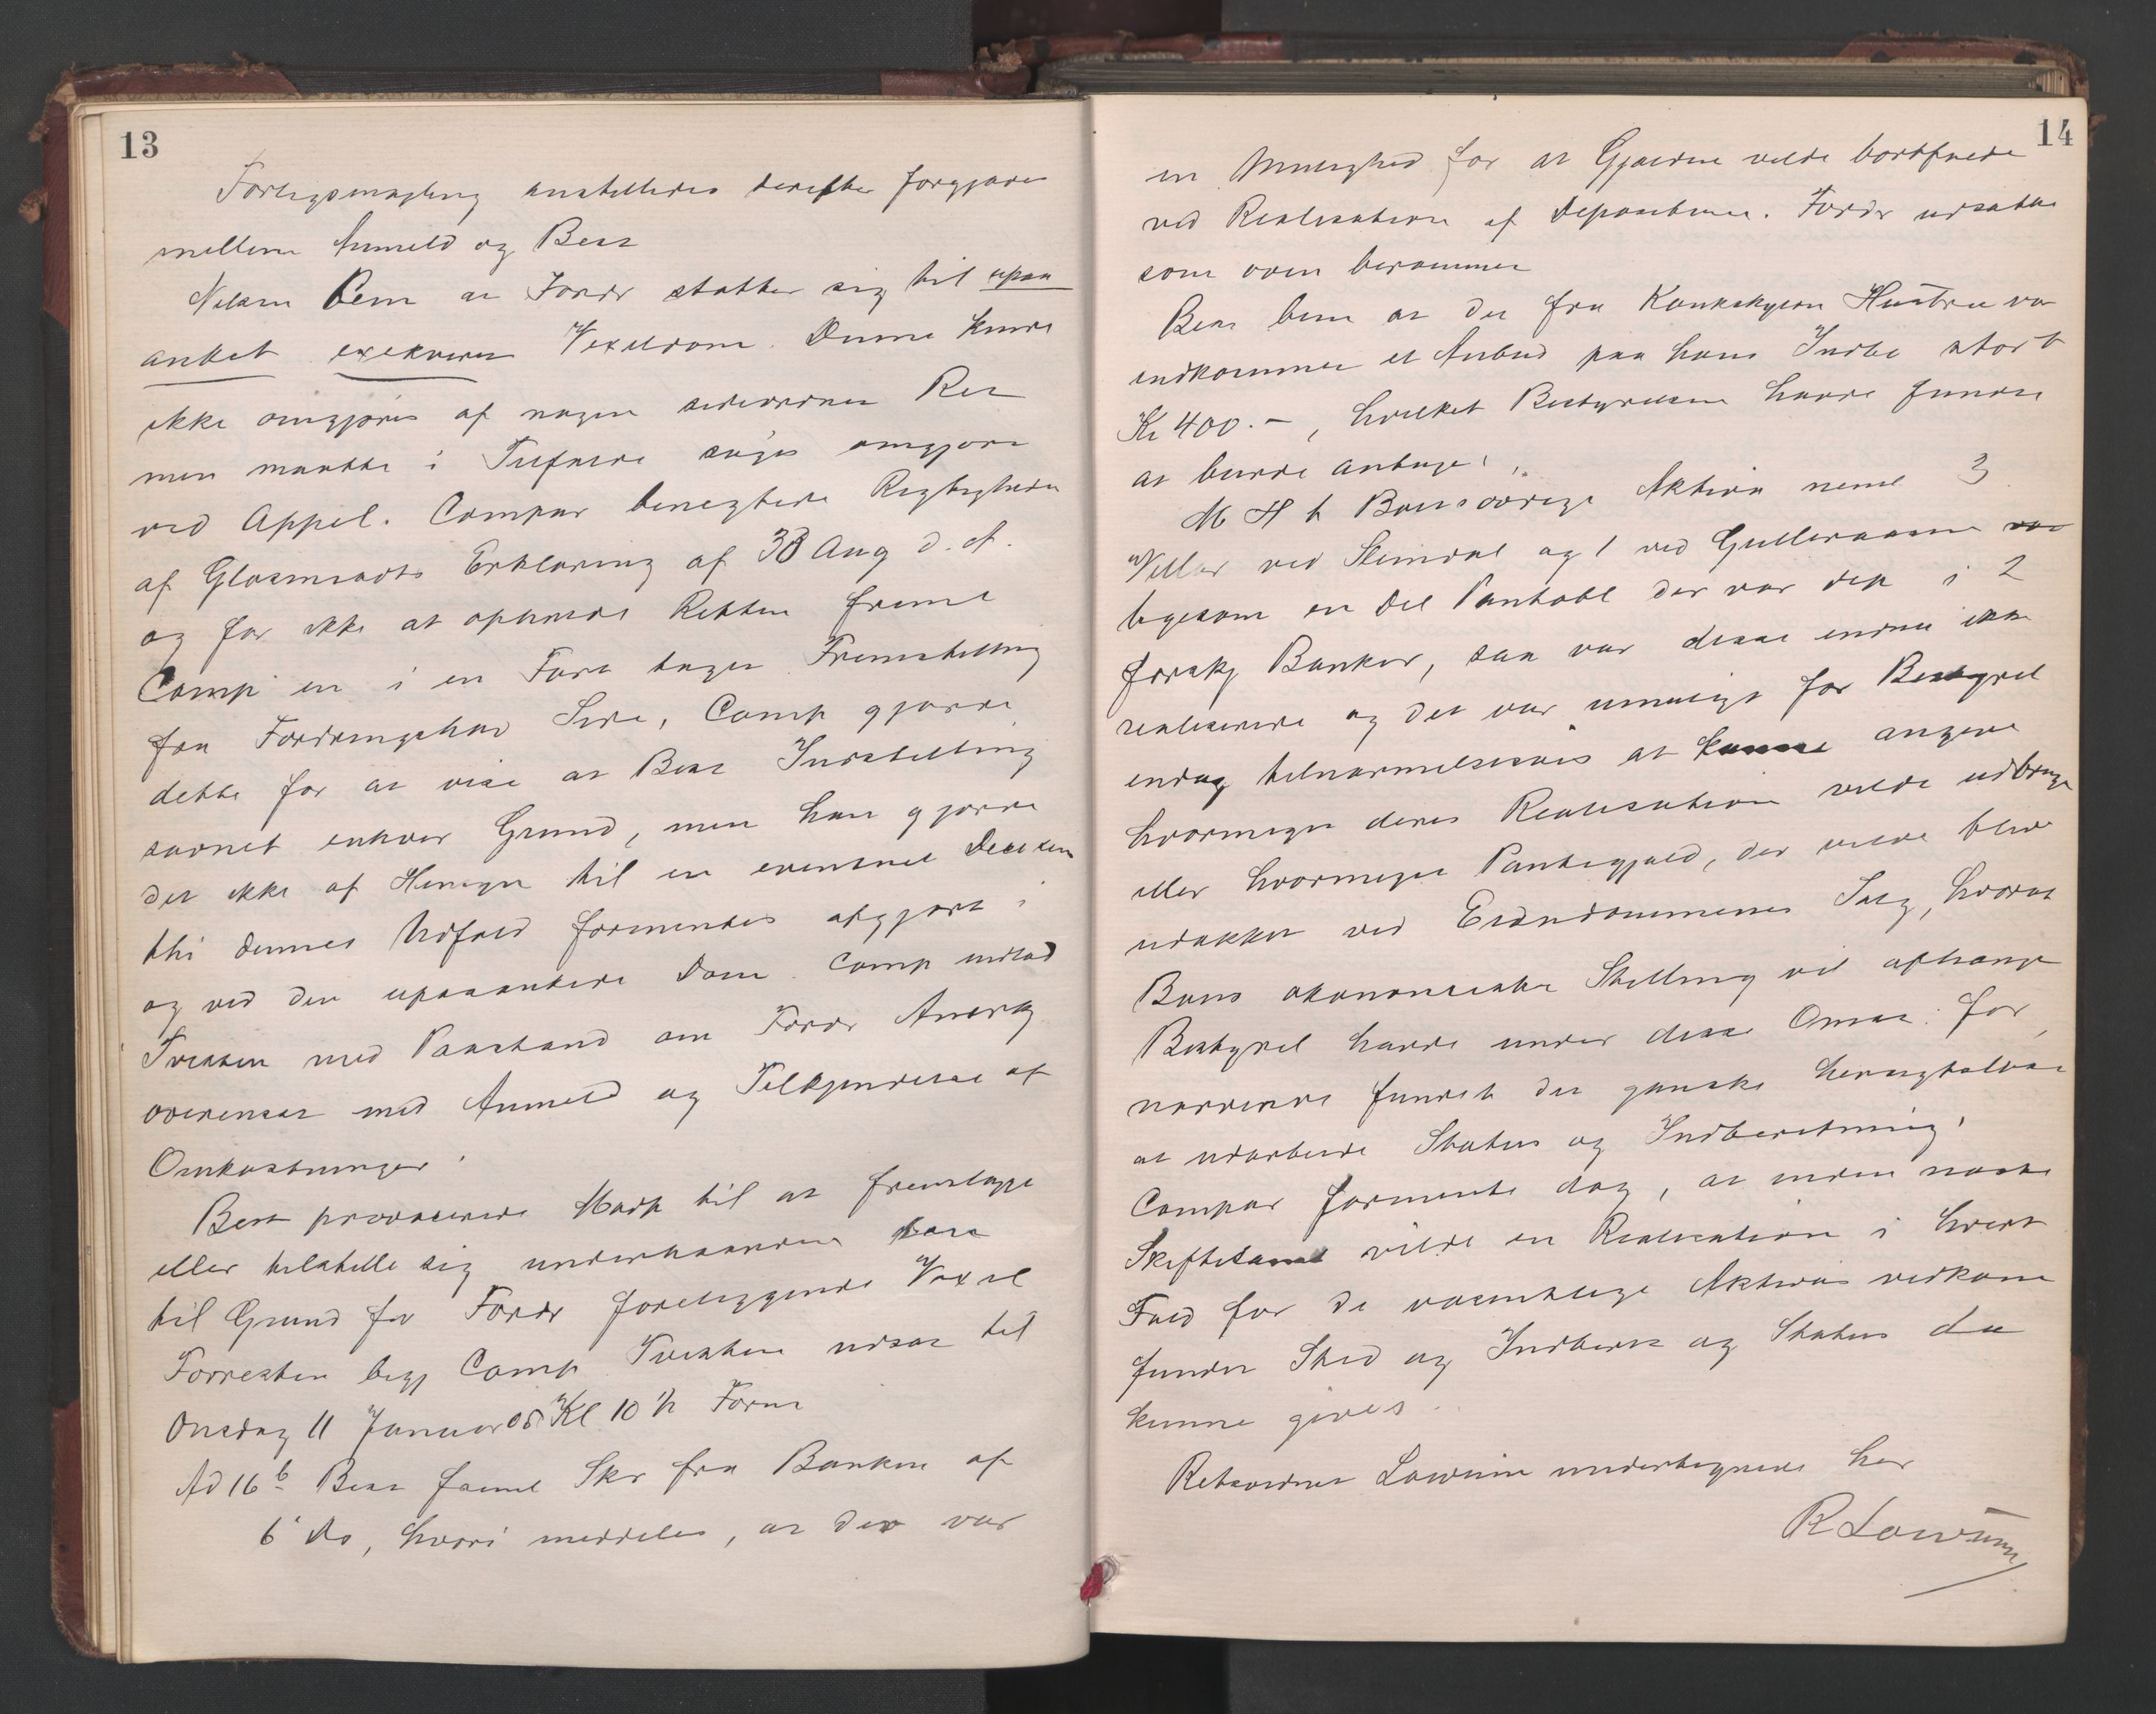 13
Forligsmægling anstilledes derefter forgjæves
mellem Anmeld og Best
Nilsen Bem at Fordr støtter sig til upaa
anket exekveret Vexeldom. Denne kunde
ikke omgjøres af nogen sideordnet Ret
men maatte i Tilfælde søges omgjort
ved Appel. Compar benegtede Rigtigheden
af Glosimodts Erklæring af 30 Aug d. A.
og for ikke at opholde Retten freml
Comp en i en Fart tagen Fremstilling
fra Fordringshav Side, Comp gjorde
dette for at vise at Best Indstilling
savnet enhver Grund, men han gjorde
det ikke af Hensyn til en eventuel Decision
thi dennes Udfald formentes afgjort i
og ved den upaaankede Dom. Comp indlod
Tvisten med Paastand om Fordr Anerkj
overensst med Anmeld og Tilkjendelse af
Omkostninger.
Best provocerede Modp til at fremlægge
eller tilstille sig underhaanden den
til Grund for Fordr foreliggende Vexel
Forresten begj Comp Tvisten udsat til
Onsdag 11 Januar 05 Kl 10 ½ Form
Ad 16 b Best freml Skr fra Banken af
6 ds, hvori meddeles, at der var
14
en Mulighed for at Gjælden vilde bortfalde
ved Realisation af Depositumet. Fordr udsattes
som oven berammet
Best bem at der fra Konkskyldn Hustru var
indkommet et Anbud paa hans Indbo stort
Kr 400.-, hvilket Bestyrelsen havde fundet
at burde antages.
M H t Boets øvrige Aktiva neml 3
Villar ved Slemdal og 1 ved Gulleraasen var
ligesom en Del Pantobl der var dep i 2
forskj Banker, saa var disse endnu ikke
realiserede og det var umuligt for Bestyrel
endog tilnærmelsesvis at kunne angive
hvormeget deres Realisation vilde udbringe
eller hvormeget Pantegjæld, der vilde blive
udækket ved Eiendommenes Salg, hvoraf
Boets økonomiske Stilling vil afhænge
Bestyrel havde under disse Omst. for
nærværende fundet det ganske hensigtsløst
at udarbeide Status og Indberetning.
Compar formente dog, at inden næste
Skiftesaml vilde en Realisation i hvert
Fald for de væsentlige Aktivas vedkom
funden Sted og Indberet og Status da
kunne gives.
Retsordner Lowum undertegnede her
R Lowum